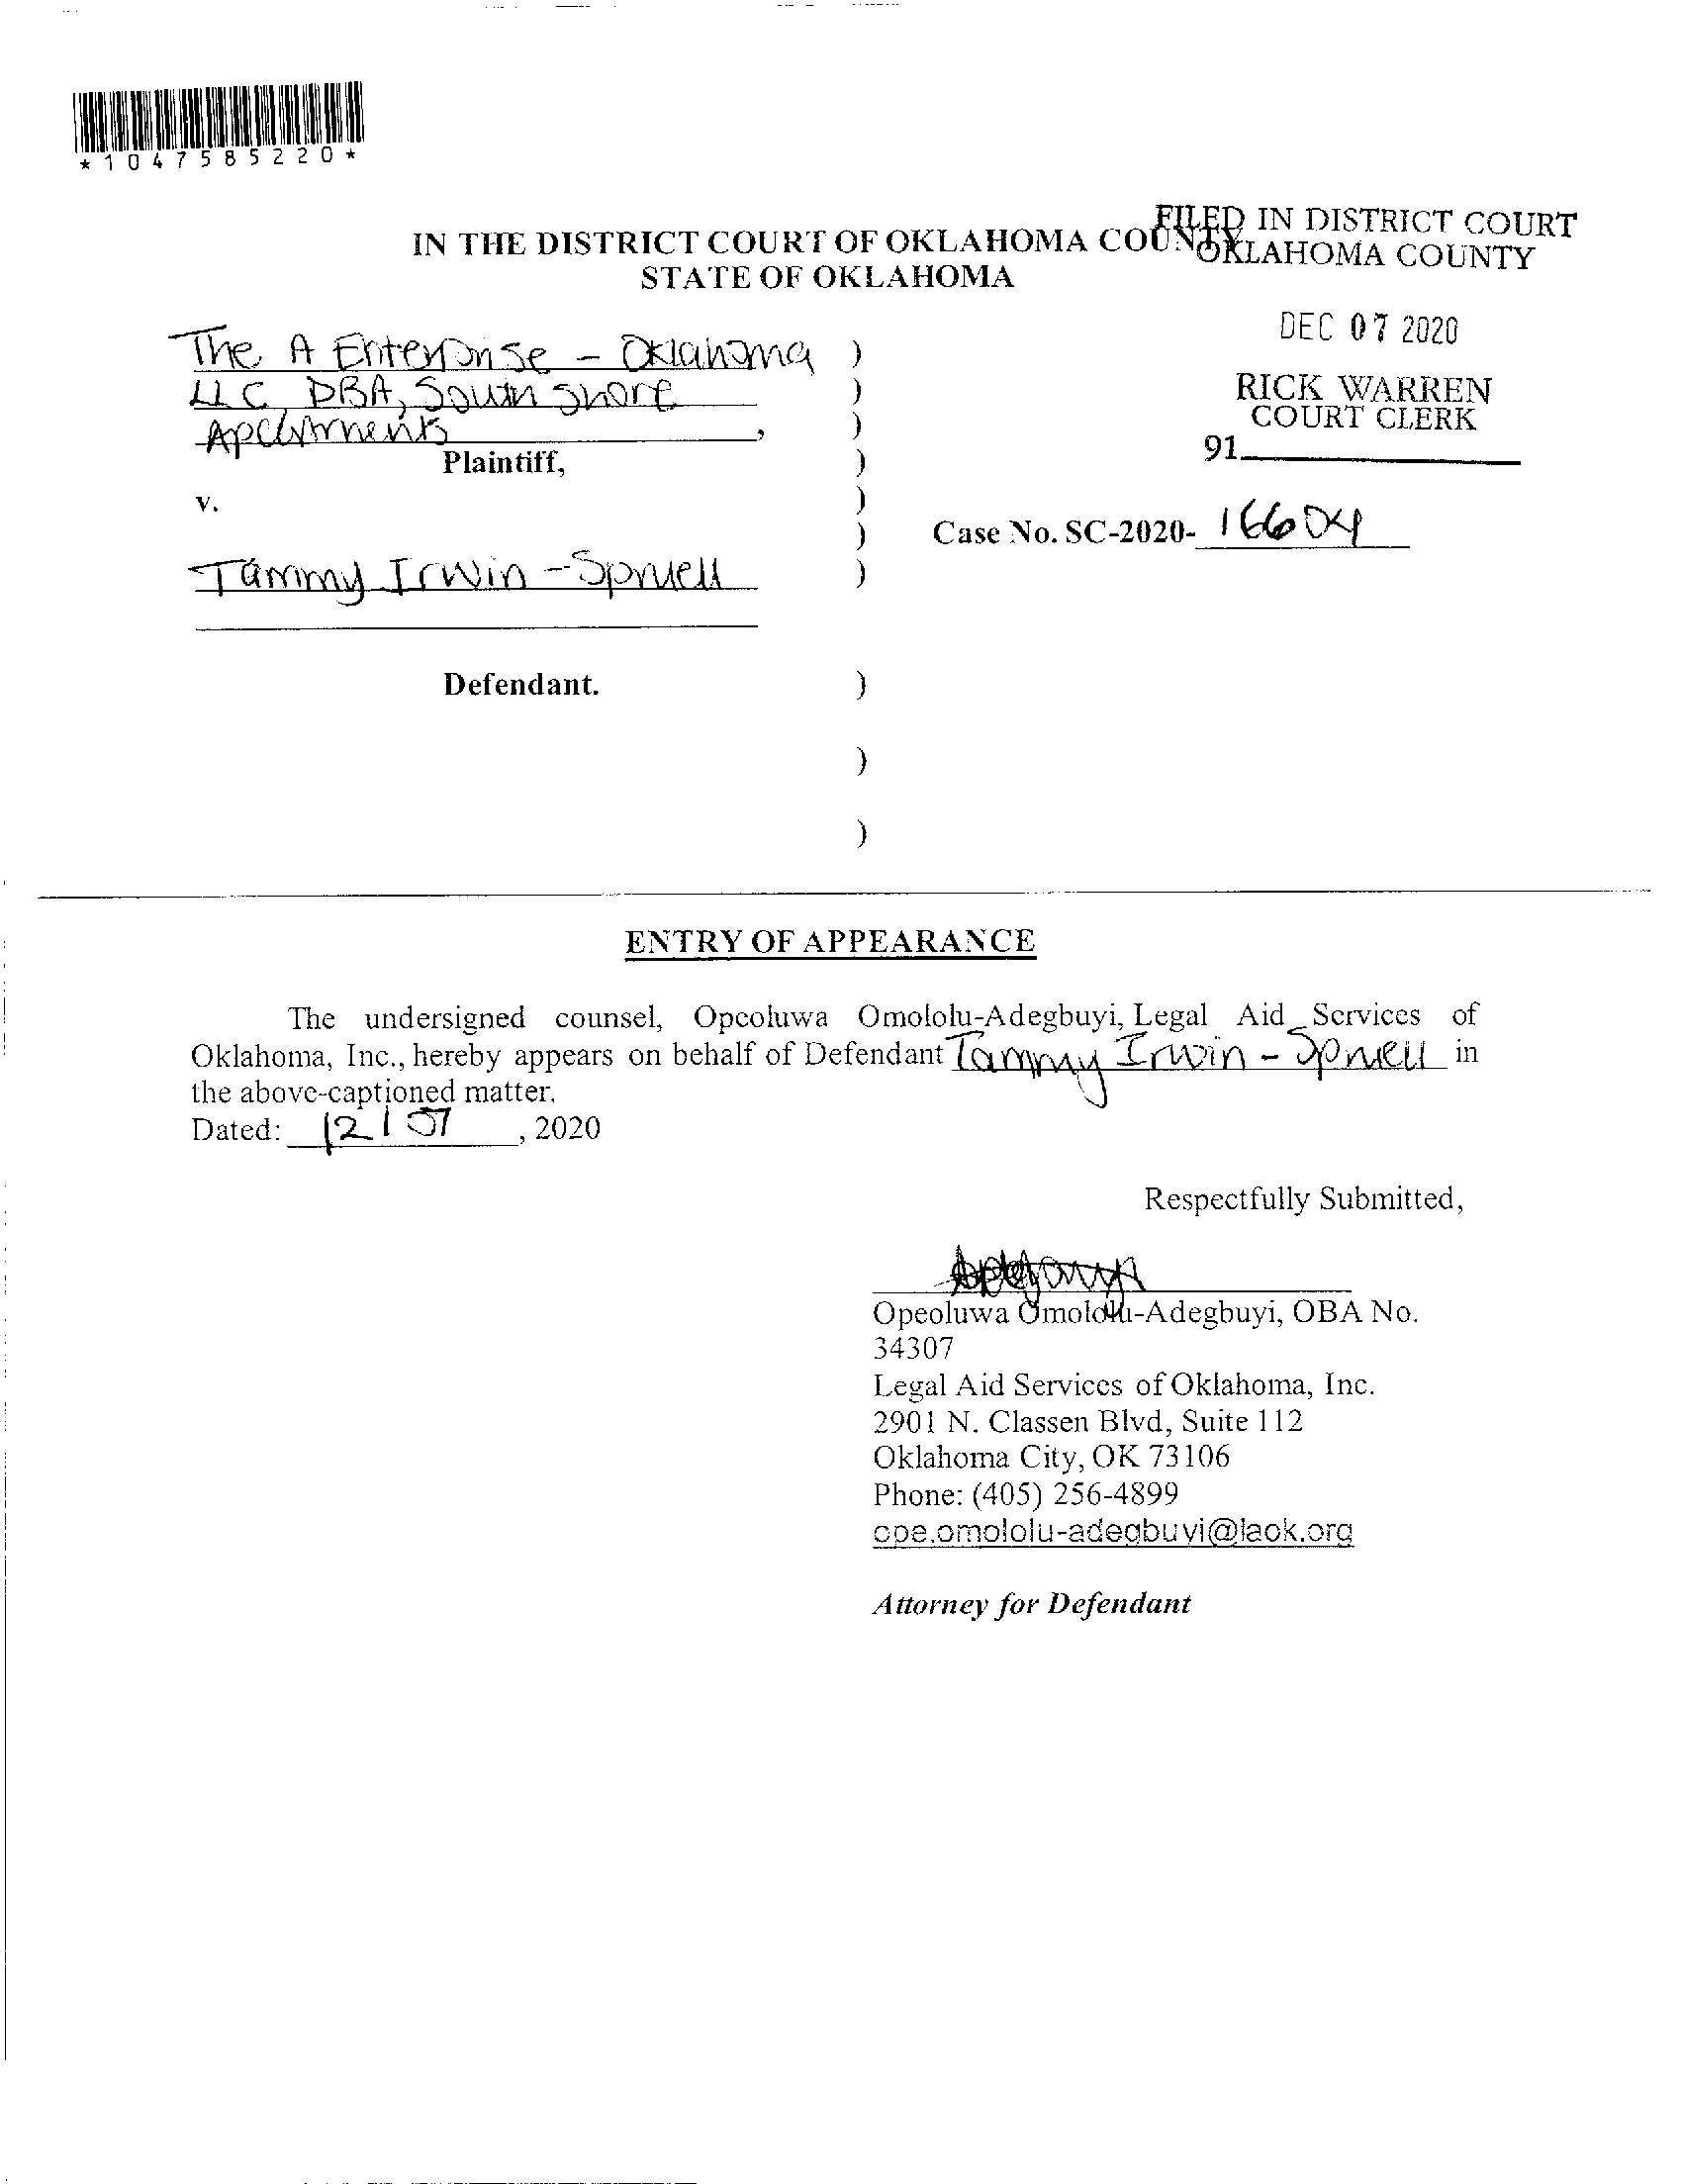 *1047585220*
FILED IN DISTRICT COURT
IN THE DISTRICT COURT OF OKLAHOMA COUNTY
OKLAHOMA COUNTY
STATE OF OKLAHOMA
DEC 07 2020
The A Enterprise - Oklahoma )
LLC DBA, South Shore )
Apartments , )
RICK WARREN
COURT CLERK
91
Plaintiff, )
v. )
) Case No. SC-2020- 16604
Tammy Irwin-Spruell )
Defendant. )
)
)
ENTRY OF APPEARANCE
The undersigned counsel, Opeoluwa Omololu-Adegbuyi, Legal Aid Services of
Oklahoma, Inc., hereby appears on behalf of Defendant Tammy Irwin - Spruell in
the above-captioned matter.
Dated: 12/07, 2020
Respectfully Submitted,
Opeoluwa Omololu-Adegbuyi, OBA No.
34307
Legal Aid Services of Oklahoma, Inc.
2901 N. Classen Blvd, Suite 112
Oklahoma City, OK 73106
Phone: (405) 256-4899
ope.omololu-adegbuyi@laok.org
Attorney for Defendant